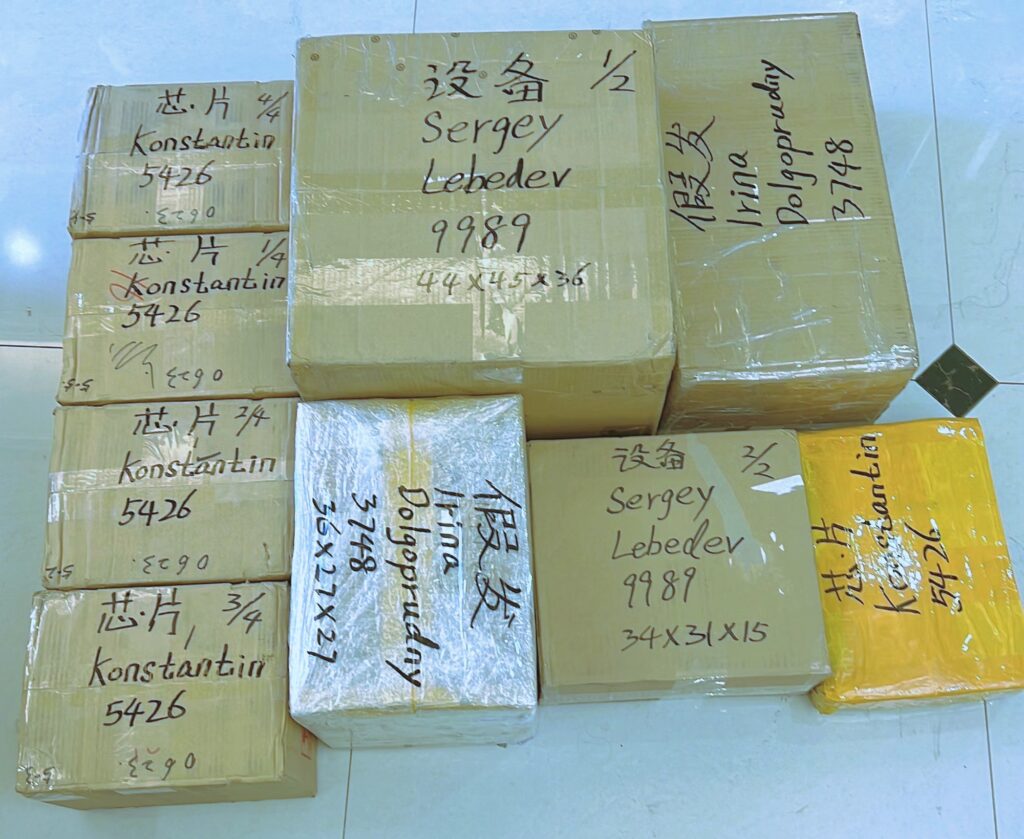 芯片 4/4
Konstantin
5426
0623
芯片 1/4
Konstantin
5426
0623
5-5
芯片 2/4
Konstantin
5426
0623
5-2
芯片 3/4
Konstantin
5426
0623
5-3
设备 1/2
Sergey
Lebedev
9989
44X45X36
假发
Irina
Dolgoprudny
3748
假发
Irina
Dolgoprudny
3748
36X27X27
设备 2/2
Sergey
Lebedev
9989
34X31X15
芯片
Konstantin
5426